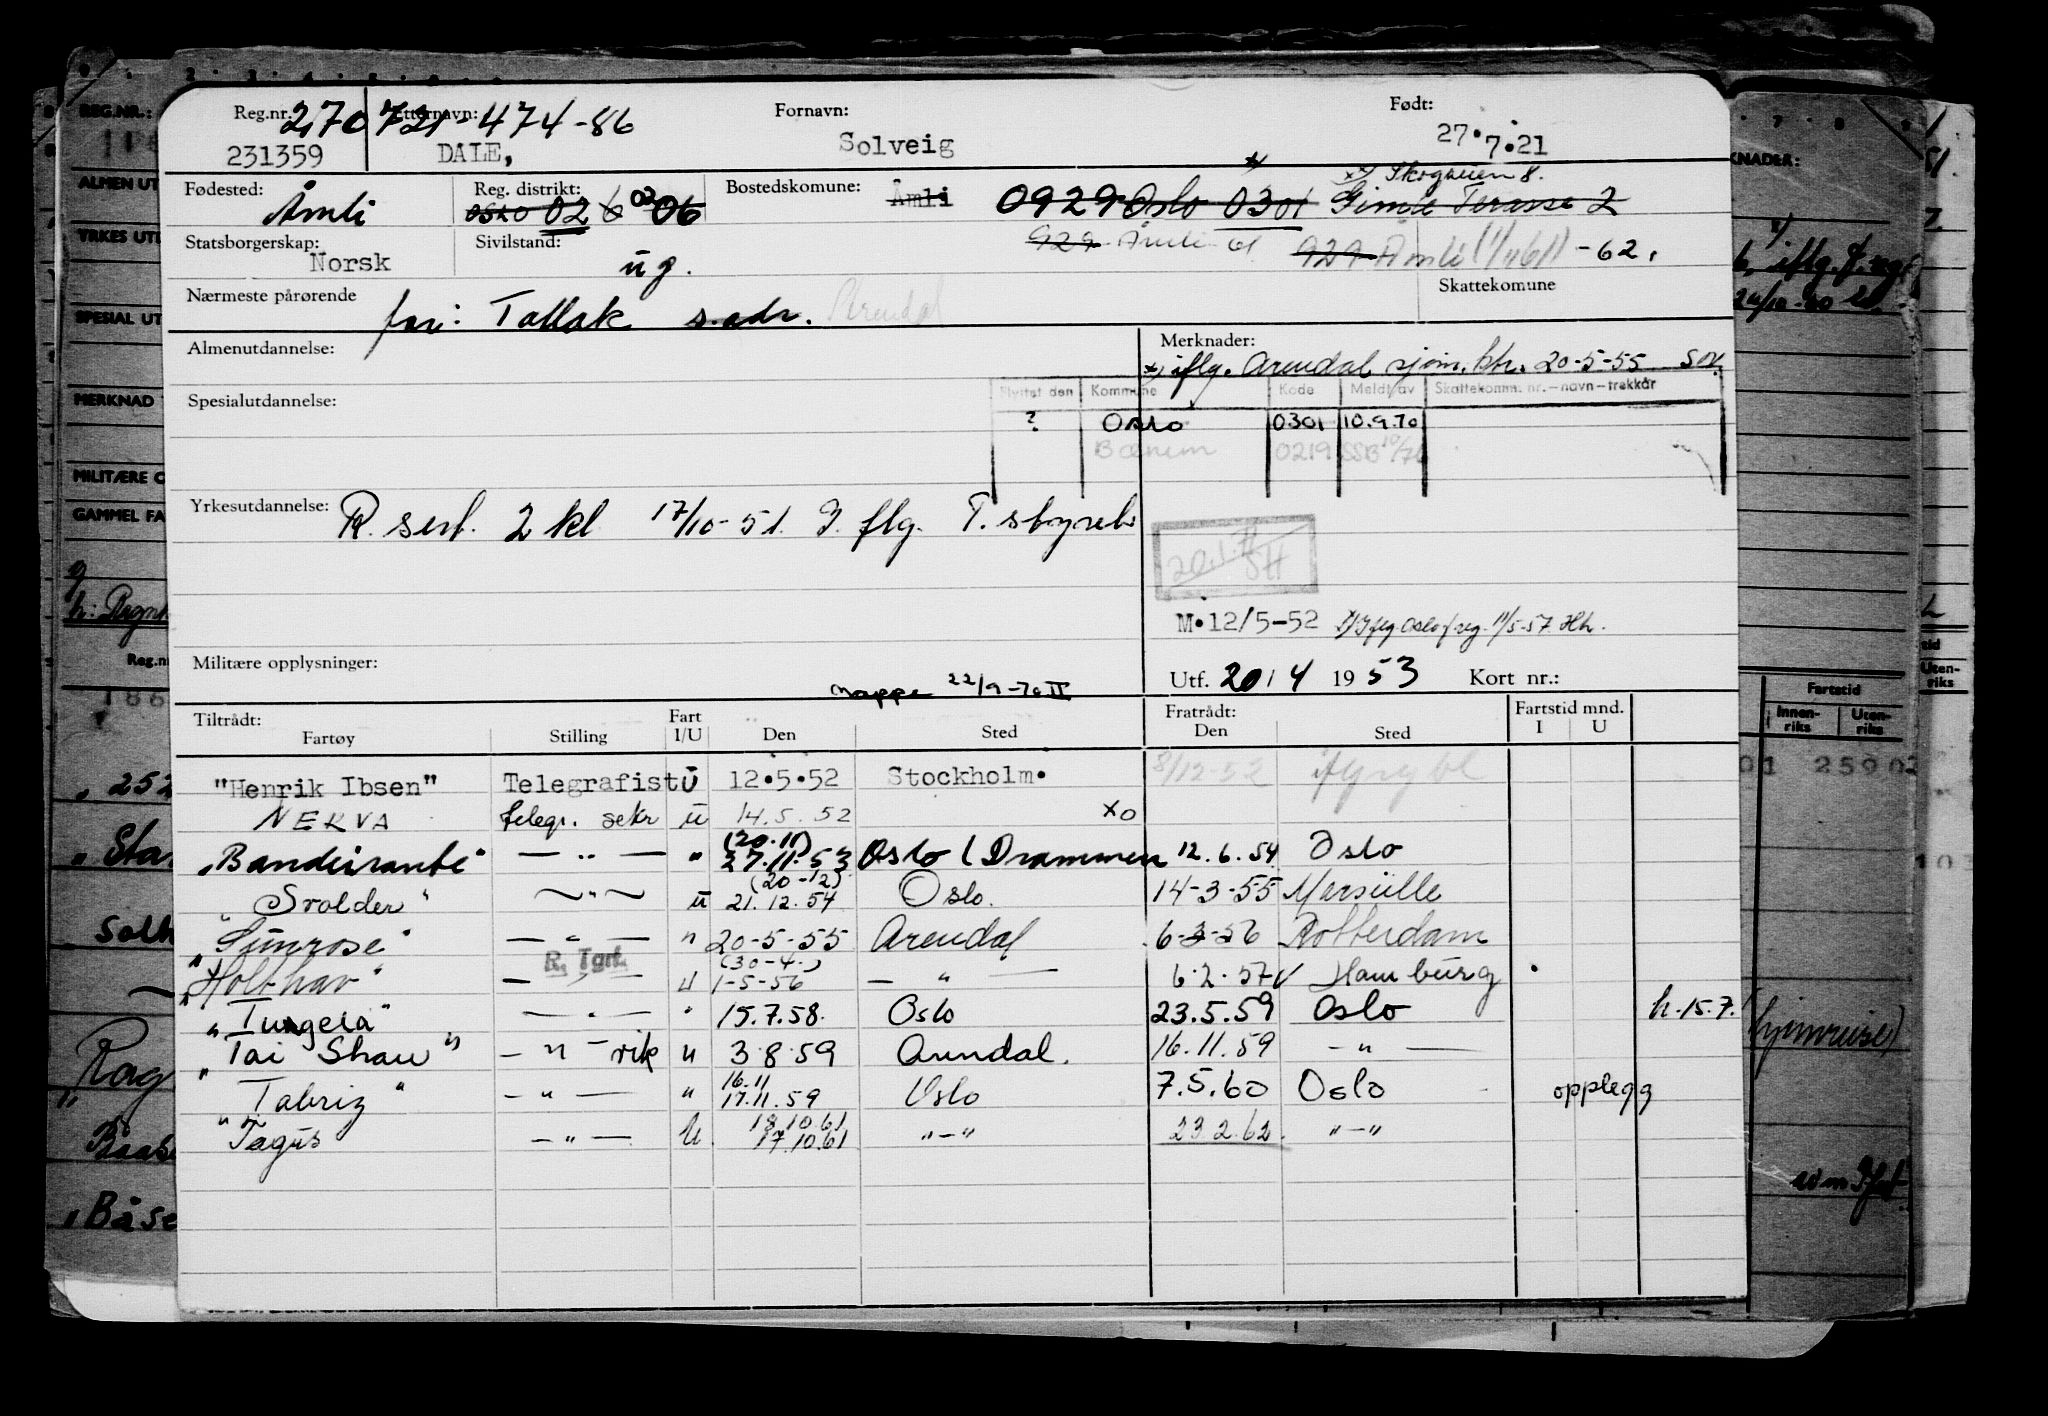 Reg.nr. 270 721-474-86 Etternavn: Fornavn: Født:
231359 DALE, Solveig 27.7.21
Fødested: Åmli Reg. distrikt: OSLO 02 03 06 Bostedskomune: Åmli 0929 Oslo 0301 Gimle Terasse 2
x) Skogveien 8.
929 Åmli 61 929 Åmli (1/1161) -62.
Statsborgerskap: Norsk Sivilstand: ug.
Nærmeste pårørende far: Tallak s.adr. Arendal Skattekomune
Almenutdannelse: Merknader:
x) iflg. Arendal sjøm.ktr. 20-5-55
Spesialutdannelse: Flyttet den Kommune Kode Meldt av Skattekomm. nr.—navn—trekkår
? Oslo 0301 10.9.70
Bærum 0219 SSB 10/76
Yrkesutdannelse: R. sert. 2 kl 17/10-51. I. flg. T. styrets
20.1.71
SH
M.12/5-52 x) Iflg Oslo f.reg. 11/5-57. Hh.
Militære opplysninger: Utf. 20/4 1953 Kort nr.:
Mappe 22/9-70 II
Tiltrådt: Fart Fratrådt: Fartstid mnd.
Fartøy Stilling I/U Den Sted Den Sted I U
"Henrik Ibsen" Telegrafist U 12.5.52 Stockholm. 8/12-52
NERVA telegr. sekr u 14.5.52 xo
(20.11)
"Bandeirante" — " — " 27.11.53 Oslo (Drammen 12.6.54 Oslo
(20-12)
"Svolder" — " — u 21.12.54 Oslo. 14-3-55 Marseille
"Sunrose" — " — " 20-5-55 Arendal 6-3-56 Rotterdam
R. Tgrt. (30-4.)
"Holthav" — " — u 1-5-56 — " — 6.2.57 Hamburg
"Tungela" — " — " 15.7.58. Oslo 23.5.59 Oslo h.15.7. (hjemreise)
"Tai Shan" — " — vik " 3.8.59 Arendal. 16.11.59 — " —
16.11
"Tabriz" — " — " 17.11.59 Oslo 7.5.60 Oslo opplegg
18.10.61
"Tagus — " — U. 17.10.61 "—" 23.2.62. "—"